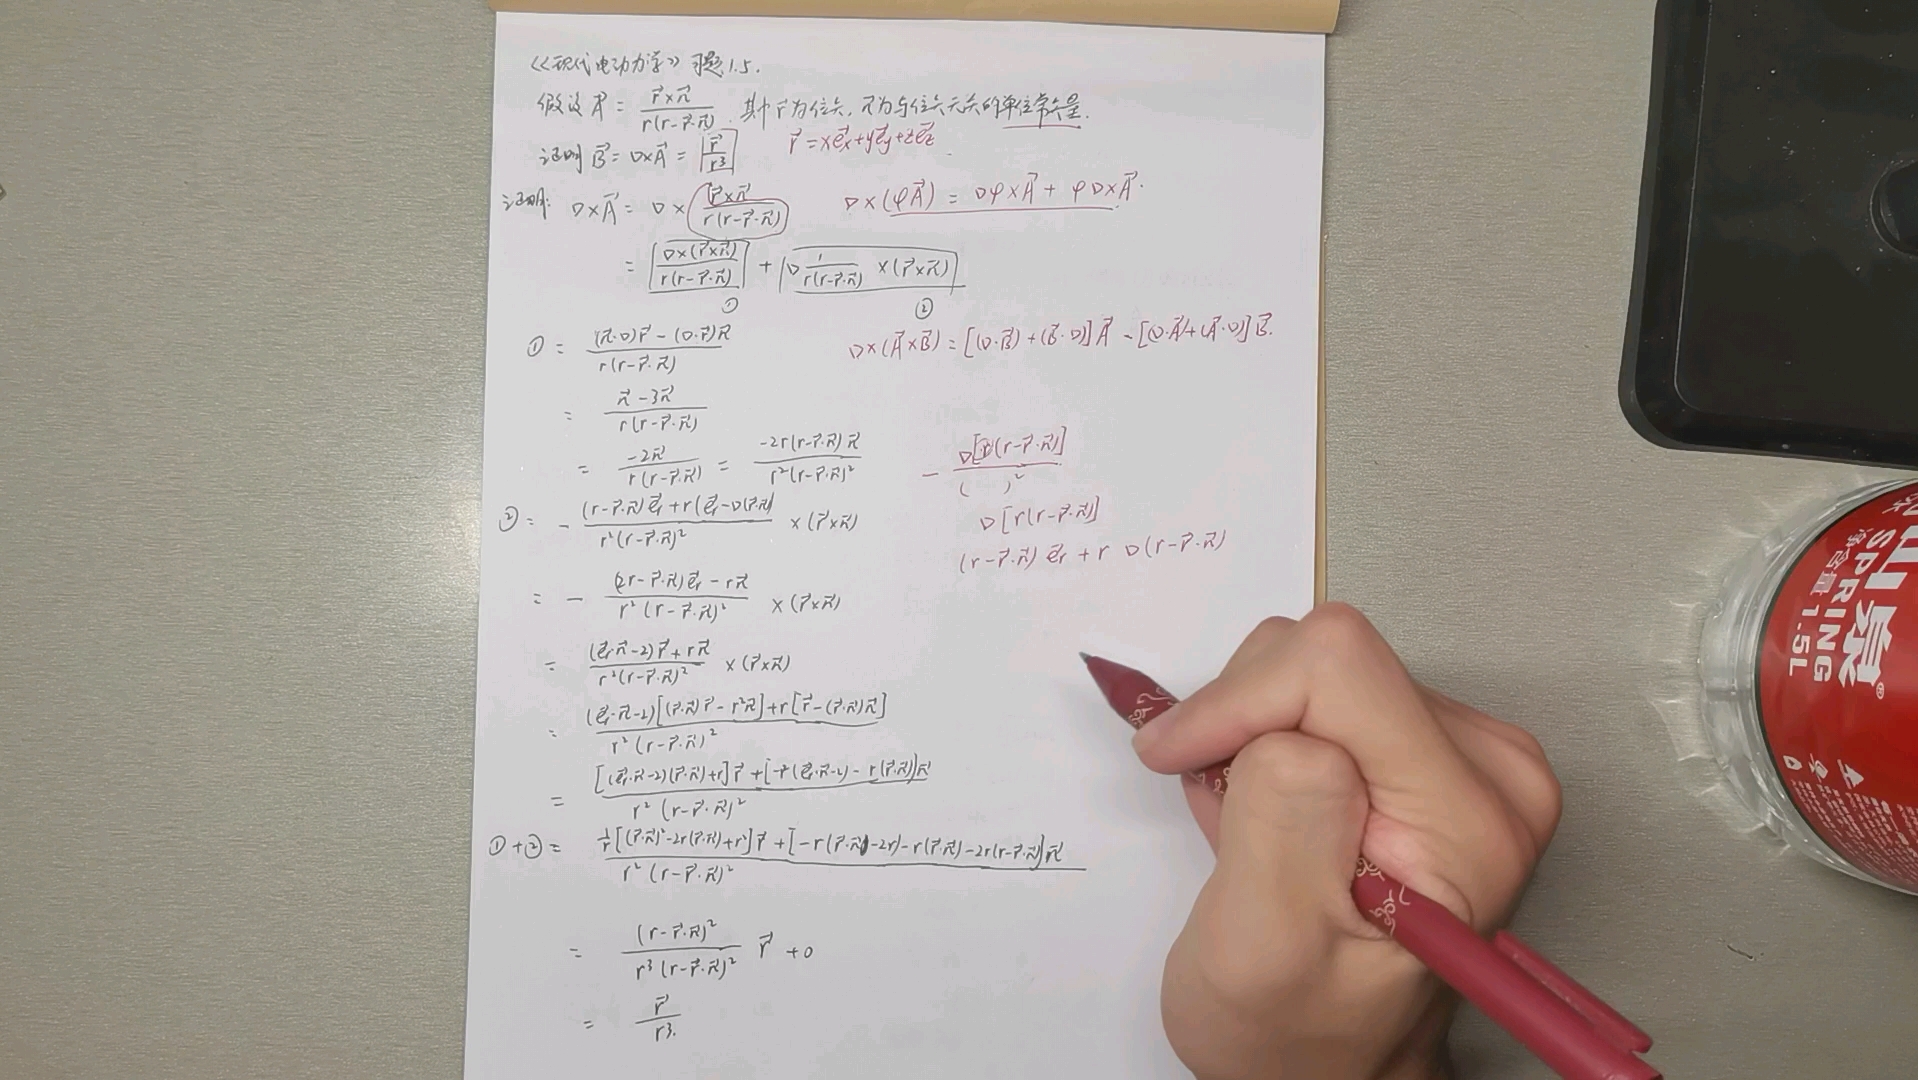 《现代电动力学》习题1.5.
假设A⃗ = (r⃗×n⃗)/(r(r-r⃗·n⃗)). 其中r⃗为位矢, n⃗为与位矢无关的单位常矢量.
证明 B⃗ = ∇×A⃗ = r⃗/r³
r⃗ = xe⃗x+ye⃗y+ze⃗z
证明: ∇×A⃗ = ∇× (r⃗×n⃗)/(r(r-r⃗·n⃗))
∇×(φA⃗) = ∇φ×A⃗ + φ∇×A⃗.
= (∇×(r⃗×n⃗))/(r(r-r⃗·n⃗)) + ∇ 1/(r(r-r⃗·n⃗)) ×(r⃗×n⃗)
① ②
① = ((n⃗·∇)r⃗ - (∇·r⃗)n⃗)/(r(r-r⃗·n⃗))
∇×(A⃗×B⃗) = [(∇·B⃗)+(B⃗·∇)]A⃗ - [(∇·A⃗)+(A⃗·∇)]B⃗.
= (n⃗-3n⃗)/(r(r-r⃗·n⃗))
= (-2n⃗)/(r(r-r⃗·n⃗)) = (-2r(r-r⃗·n⃗)n⃗)/(r²(r-r⃗·n⃗)²)
- ∇[r(r-r⃗·n⃗)]/( )²
② = - ((r-r⃗·n⃗)e⃗r+r(e⃗r-∇(r⃗·n⃗)))/(r²(r-r⃗·n⃗)²) ×(r⃗×n⃗)
∇[r(r-r⃗·n⃗)]
(r-r⃗·n⃗)e⃗r + r ∇(r-r⃗·n⃗)
= - ((2r-r⃗·n⃗)e⃗r - rn⃗)/(r²(r-r⃗·n⃗)²) ×(r⃗×n⃗)
= ((e⃗r·n⃗-2)r⃗+rn⃗)/(r²(r-r⃗·n⃗)²) ×(r⃗×n⃗)
= ((e⃗r·n⃗-2)[(r⃗·n⃗)r⃗-r²n⃗]+r[r⃗-(r⃗·n⃗)n⃗])/(r²(r-r⃗·n⃗)²)
= ([(e⃗r·n⃗-2)(r⃗·n⃗)+r]r⃗+[-r²(e⃗r·n⃗-2)-r(r⃗·n⃗)]n⃗)/(r²(r-r⃗·n⃗)²)
①+② = (1/r[(r⃗·n⃗)²-2r(r⃗·n⃗)+r²]r⃗+[-r(r⃗·n⃗-2r)-r(r⃗·n⃗)-2r(r-r⃗·n⃗)]n⃗)/(r²(r-r⃗·n⃗)²)
= (r-r⃗·n⃗)²/(r³(r-r⃗·n⃗)²) r⃗ + 0
= r⃗/r³.
山泉®
SPRING
净含量 1.5L